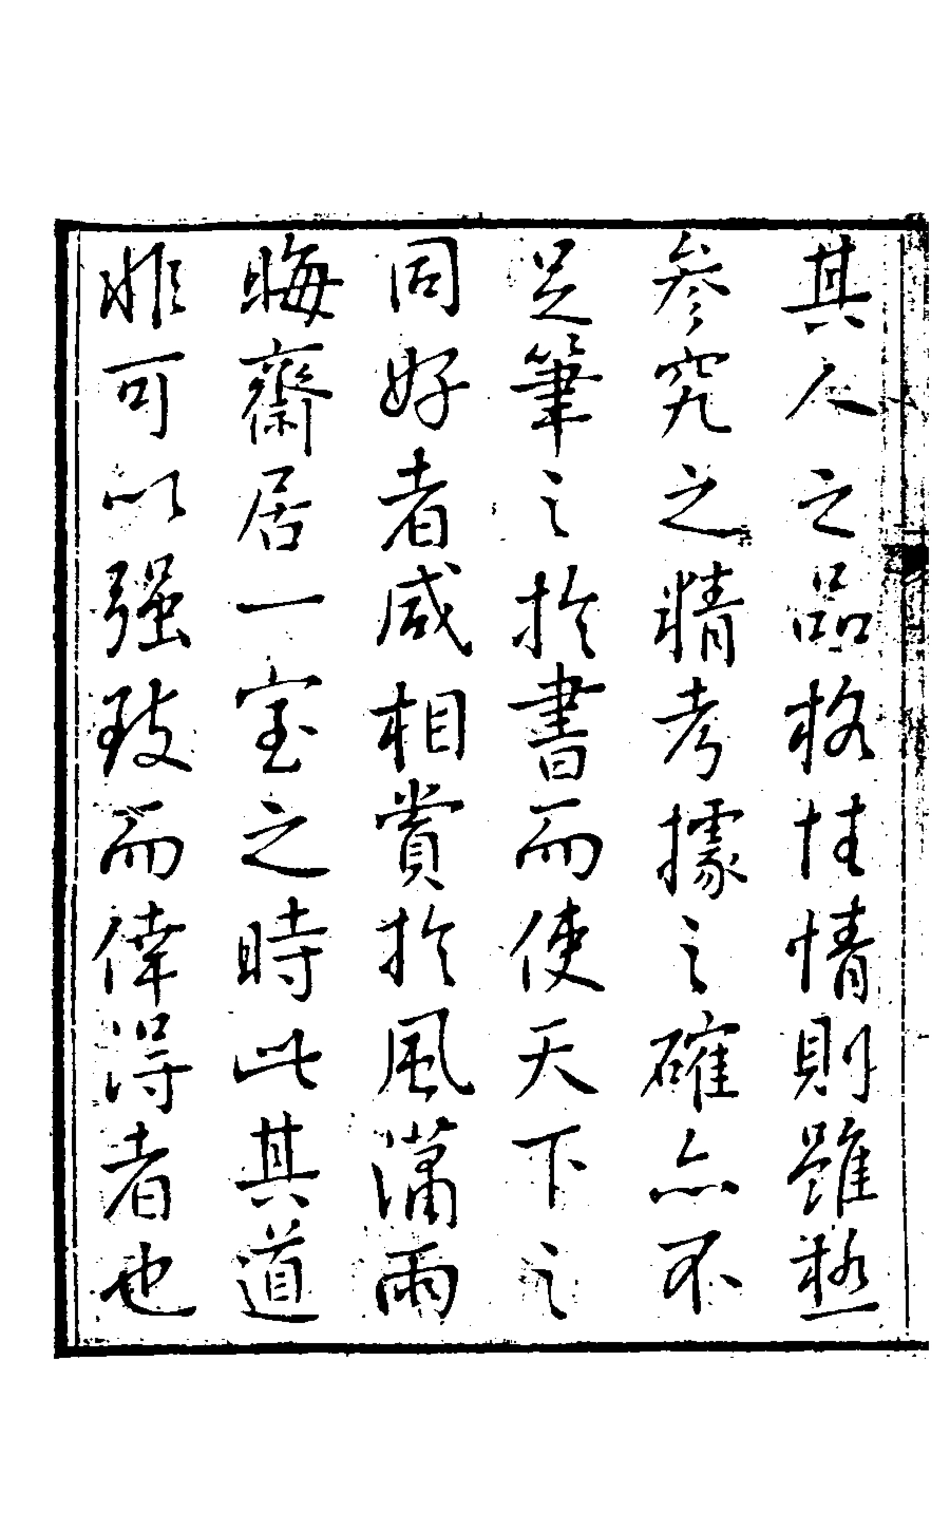 其人之品格性情則雖極
參究之精考據之確亦不
足筆之於書而使天下之
同好者咸相賞於風瀟雨
晦齋居一室之時此其道
非可以强致而倖得者也